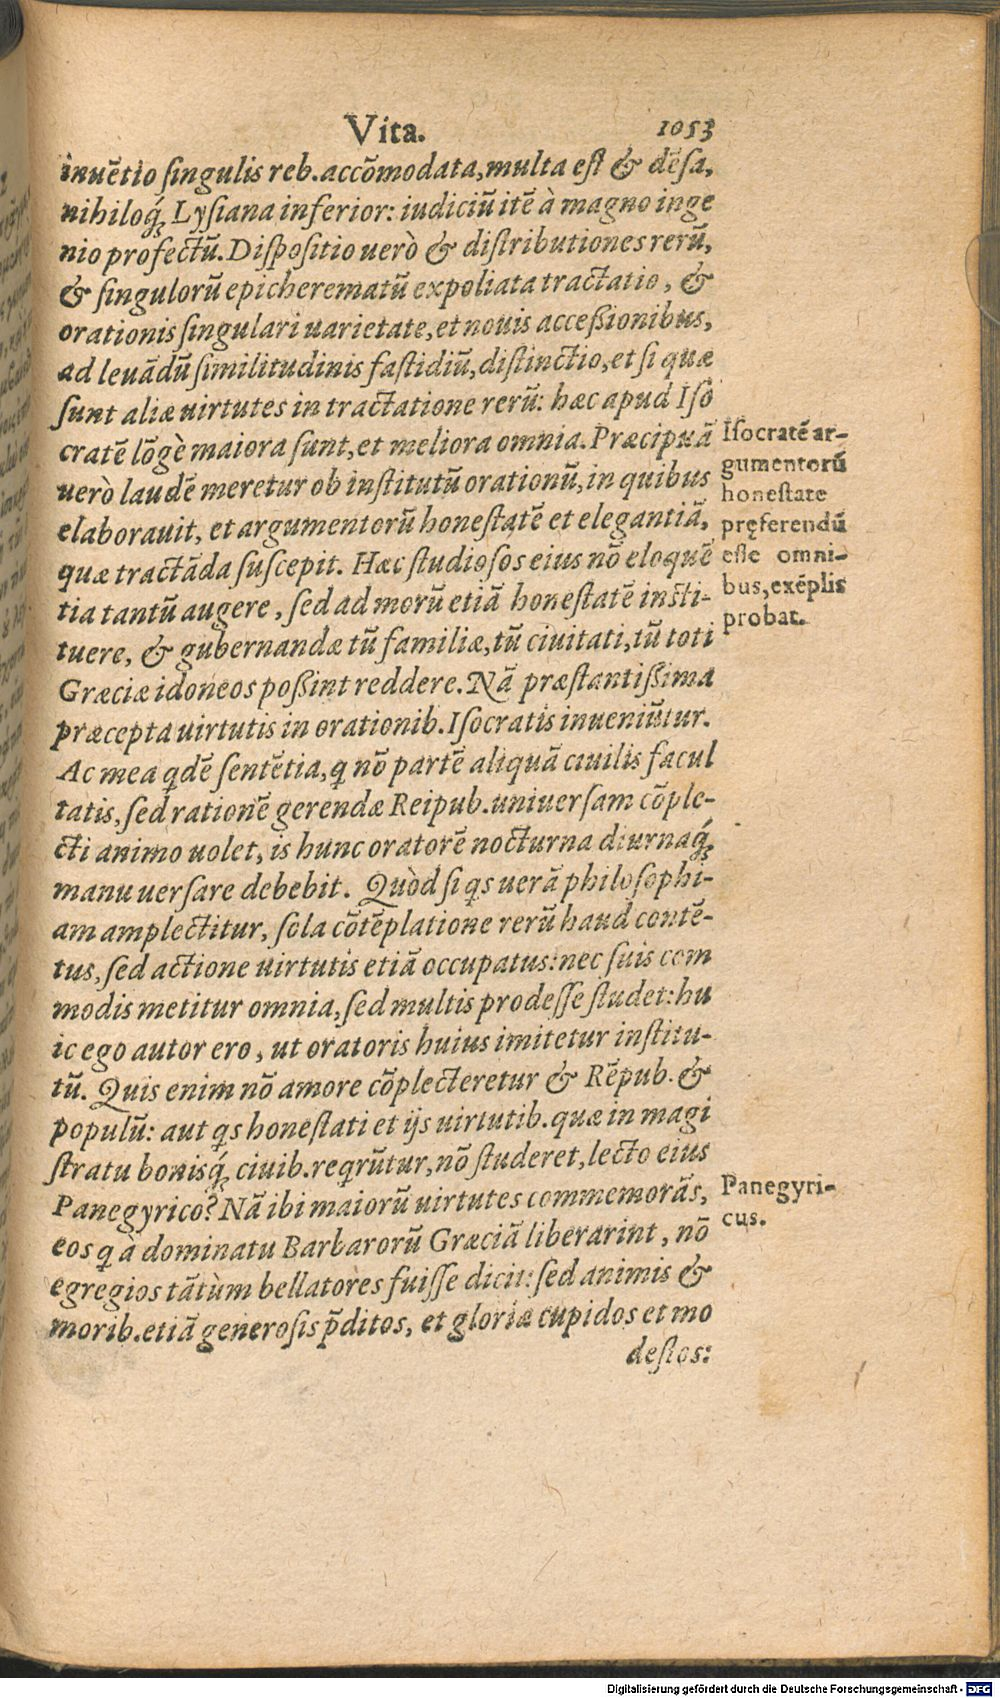 Vita. 1053
inuētio singulis reb. accōmodata, multa est & dēsa,
nihiloq́; Lysiana inferior: iudiciū itē à magno inge
nio profectū. Dispositio uerò & distributiones rerū,
& singulorū epicherematū expoliata tractatio, &
orationis singulari uarietate, et nouis accessionibus,
ad leuādū similitudinis fastidiū, distinctio, et si quæ
sunt aliæ uirtutes in tractatione rerū: hæc apud Iso
cratē lōgè maiora sunt, et meliora omnia. Præcipuā
uerò laudē meretur ob institutū orationū, in quibus
elaborauit, et argumentorū honestatē et elegantiā,
quæ tractāda suscepit. Hæc studiosos eius nō eloquē
tia tantū augere, sed ad morū etiā honestatē insti-
tuere, & gubernandæ tū familiæ, tū ciuitati, tū toti
Græciæ idoneos possint reddere. Nā præstantissima
præcepta uirtutis in orationib. Isocratis inueniūtur.
Ac mea qdē sentētia, q nō partē aliquā ciuilis facul
tatis, sed rationē gerendæ Reipub. uniuersam cōple-
cti animo uolet, is hunc oratorē nocturna diurnaq́;
manu uersare debebit. Quòd si qs uerā philosophi-
am amplectitur, sola cōtēplatione rerū haud contē-
tus, sed actione uirtutis etiā occupatus: nec suis com
modis metitur omnia, sed multis prodesse studet: hu
ic ego autor ero, ut oratoris huius imitetur institu-
tū. Quis enim nō amore cōplecteretur & Rēpub. &
populū: aut qs honestati et ijs uirtutib. quæ in magi
stratu bonisq́; ciuib. reqrūtur, nō studeret, lecto eius
Panegyrico? Nā ibi maiorū uirtutes commemorās,
eos q à dominatu Barbarorū Græciā liberarint, nō
egregios tātùm bellatores fuisse dicit: sed animis &
morib. etiā generosis p̄ditos, et gloriæ cupidos et mo
destos:
Isocratē ar-
gumentorū
honestate
pręferendū
esse omni-
bus, exēplis
probat.
Panegyri-
cus.
Digitalisierung gefördert durch die Deutsche Forschungsgemeinschaft - DFG